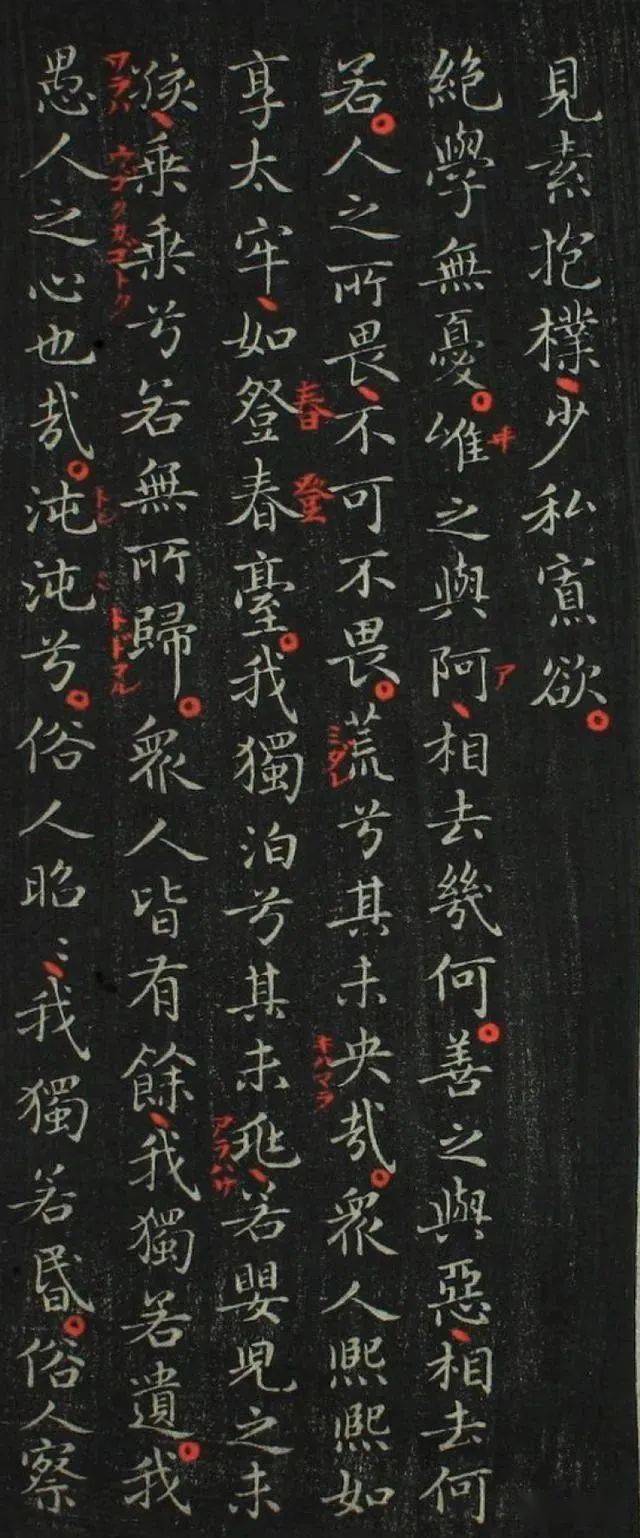 見素抱樸、少私寡欲。
絕學無憂。唯之與阿、相去幾何。善之與惡、相去何
ヰ
ア
若。人之所畏、不可不畏。荒兮其未央哉。眾人熙熙如
ミダレ
キハマラ
享太牢、如登春臺。我獨泊兮其未兆、若嬰兒之未
春
登
アラハサ
孩、乗乗兮若無所歸。眾人皆有餘、我獨若遺。我
ワラハ
トドマル
愚人之心也哉。沌沌兮。俗人昭〻、我獨若昬。俗人察
トン